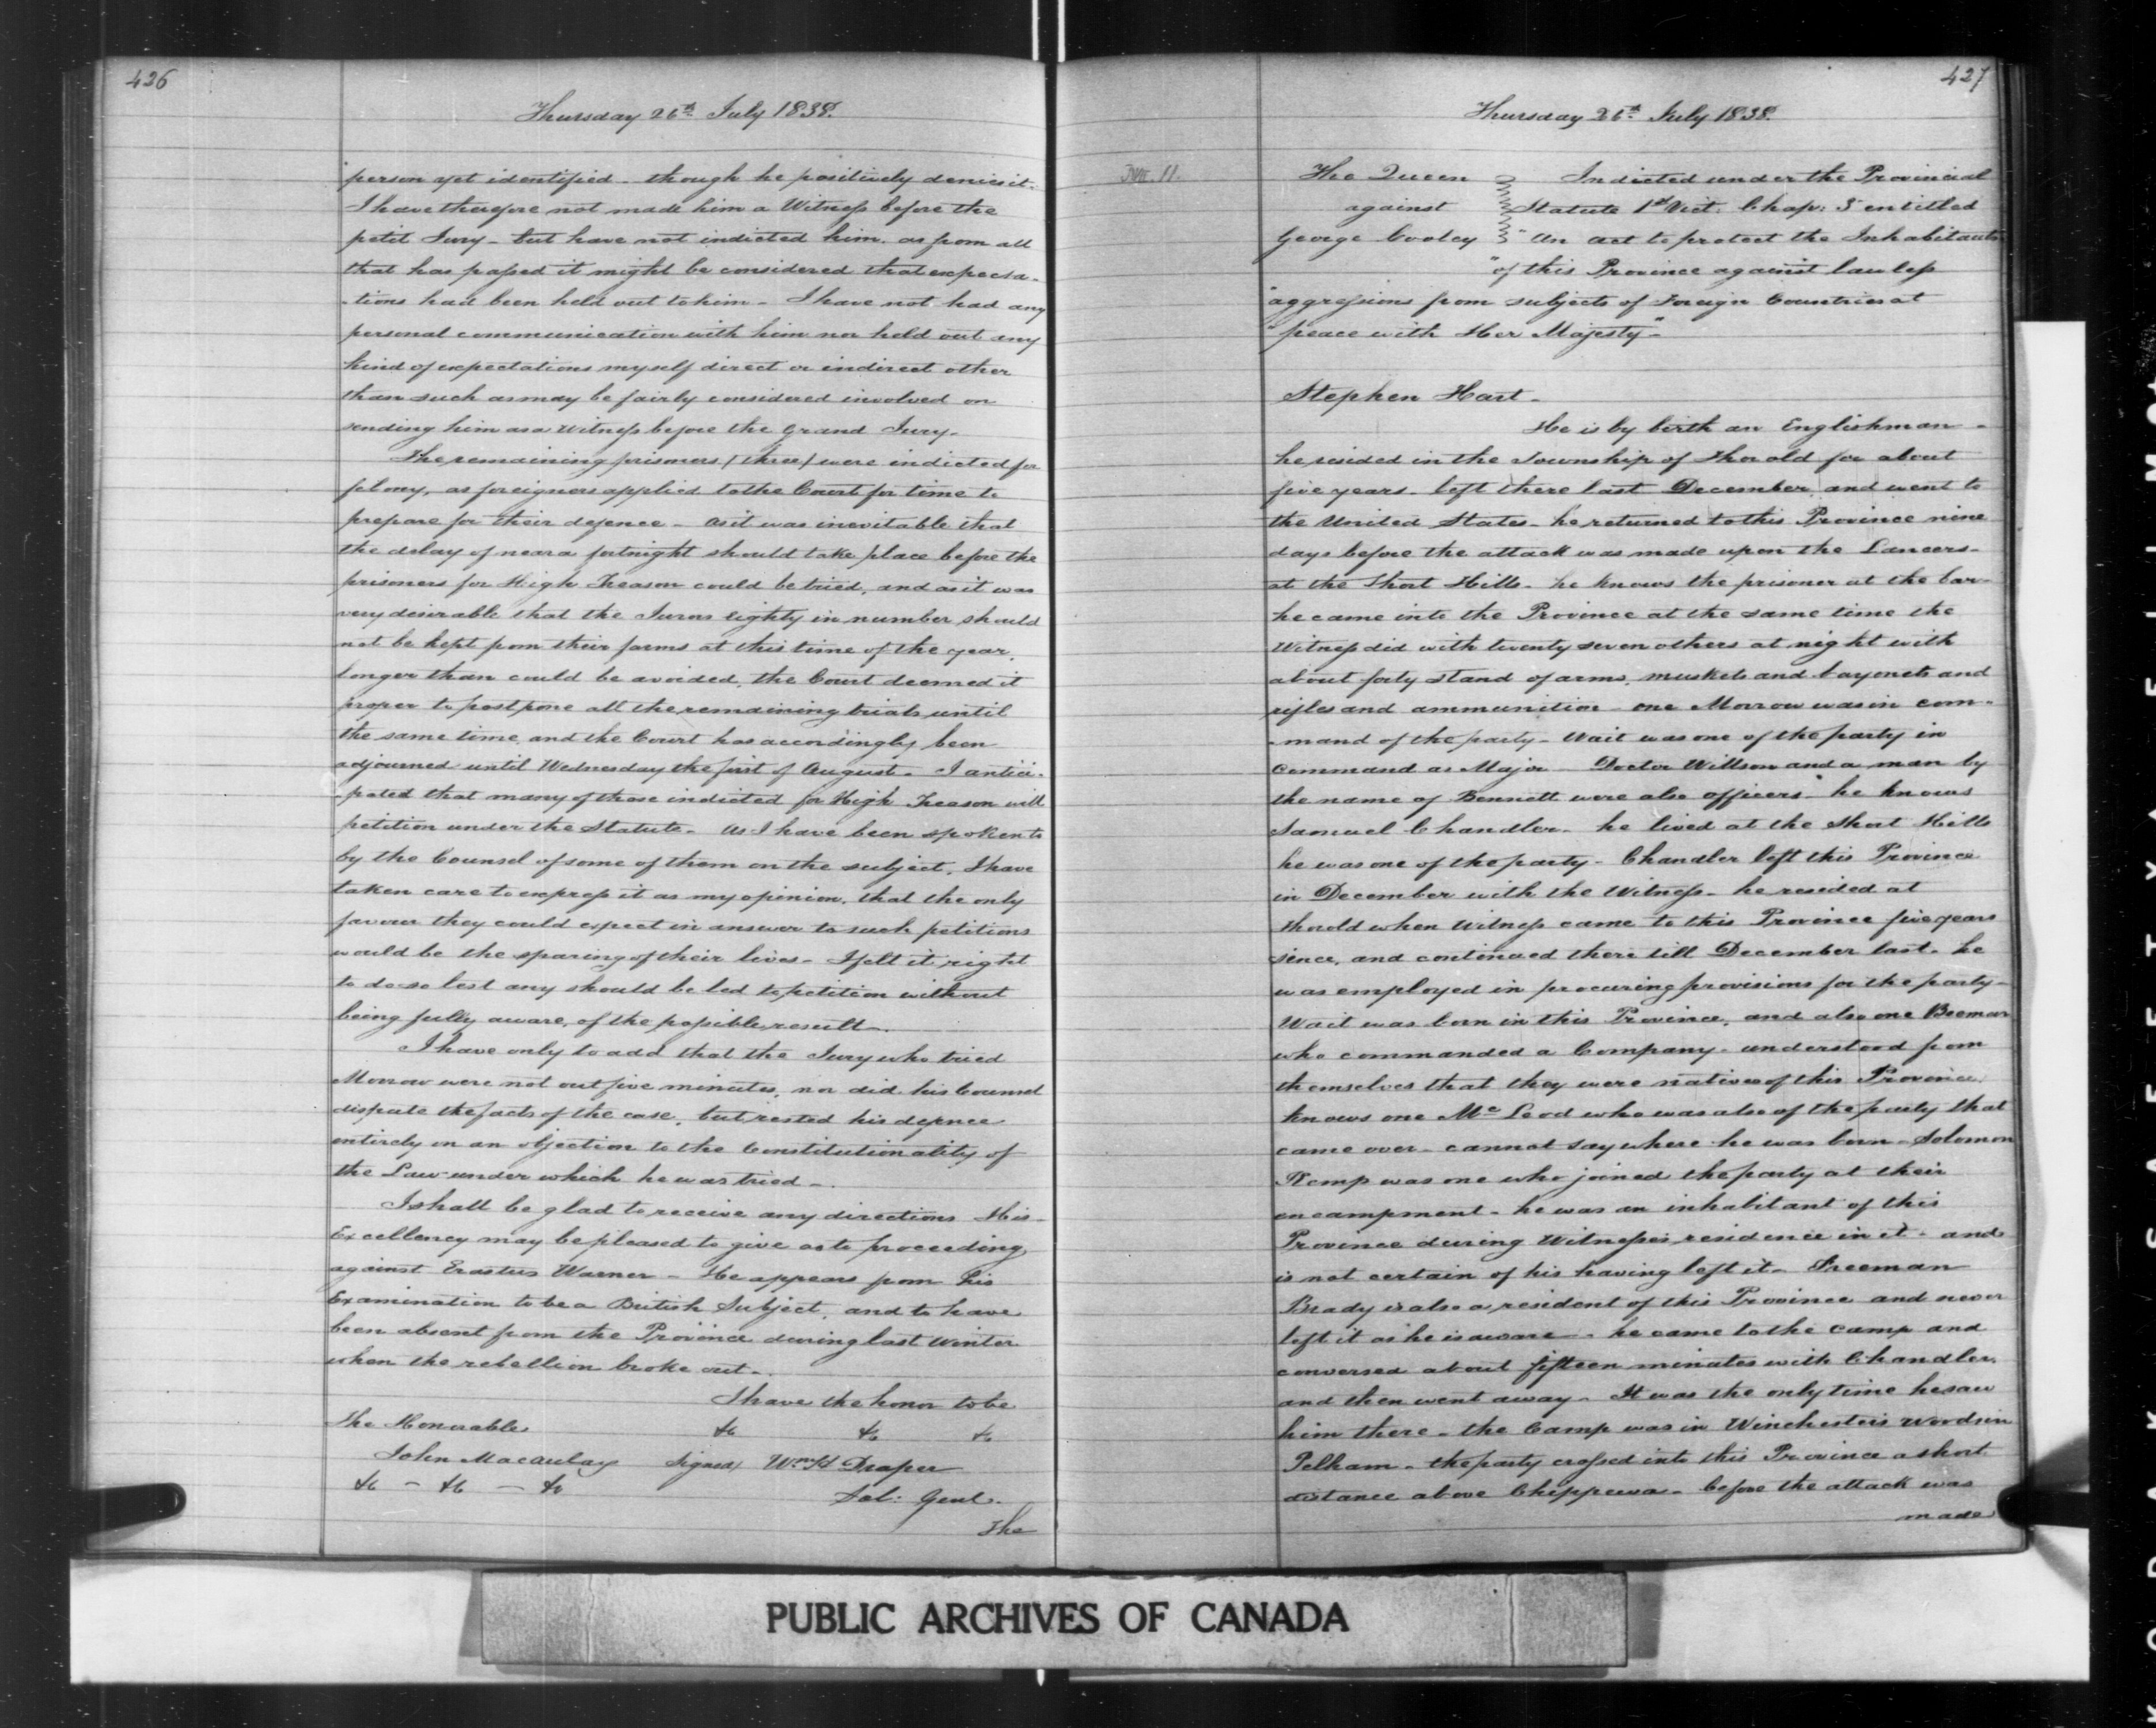 426
Thursday 26th July 1838.
person yet identified - though he positively denies it.
I have therefore not made him a Witness before the
petit Jury - but have not indicted him. as from all
that has passed it might be considered that expecta-
-tions had been held out to him - I have not had any
personal communication with him nor held out any
kind of expectations myself direct or indirect other
than such as may be fairly considered involved on
sending him as a Witness before the Grand Jury.
The remaining prisoners (three) were indicted for
felony, as foreigners applied to the Court for time to
prepare for their defence - As it was inevitable that
the delay of near a fortnight should take place before the
prisoners for High Treason could be tried, and as it was
very desirable that the Jurors eighty in number should
not be kept from their farms at this time of the year,
longer than could be avoided, the Court deemed it
proper to postpone all the remaining trials until
the same time, and the Court has accordingly been
adjourned until Wednesday the first of August - I antici-
-pated that many of those indicted for High Treason will
petition under the Statute - As I have been spoken to
by the Counsel of some of them on the subject, I have
taken care to express it as my opinion, that the only
favour they could expect in answer to such petitions
would be the sparing of their lives - I felt it right
to do so lest any should be led to petition without
being fully aware, of the possible result -
I have only to add that the Jury who tried
Morrow were not out five minutes, nor did his Counsel
dispute the facts of the case, but rested his defence
entirely on an objection to the Constitutionality of
the Law under which he was tried -
I shall be glad to receive any directions His
Excellency may be pleased to give as to proceeding
against Erastus Warner - He appears from his
Examination to be a British Subject, and to have
been absent from the Province during last Winter
when the rebellion broke out -
I have the honor to be
The Honorable &c &c &c
John Macaulay signed) Wm H Draper
&c - &c - &c Sol: Genl.
The
PUBLIC ARCHIVES OF CANADA
427
Thursday 26th July 1838.
No. 11.
The Queen Indicted under the Provincial
against Statute 1st Vict. Chap: 3 entitled
George Cooley "An act to protect the Inhabitants
"of this Province against lawless
"aggressions from subjects of Foreign Countries at
"peace with Her Majesty"-
Stephen Hart -
He is by birth an Englishman -
he resided in the Township of Thorold for about
five years - left there last December, and went to
the United States - he returned to this Province nine
days before the attack was made upon the Lancers -
at the Short Hills - he knows the prisoner at the bar -
he came into the Province at the same time the
Witness did with twenty seven others at night with
about forty stand of arms, muskets and bayonets and
rifles and ammunition - one Morrow was in com-
-mand of the party - Wait was one of the party in
command as Major - Doctor Willson and a man by
the name of Bennett were also officers - he knows
Samuel Chandler - he lived at the Short Hills
he was one of the party - Chandler left this Province
in December with the Witness - he resided at
Thorold when Witness came to this Province five years
since, and continued there till December last - he
was employed in procuring provisions for the party -
Wait was born in this Province, and also one Beemer
who commanded a Company - understood from
themselves that they were natives of this Province.
knows one Mc Leod who was also of the party that
came over - cannot say where he was born - Solomon
Kemp was one who joined the party at their
encampment - he was an inhabitant of this
Province during Witness's residence in it - and
is not certain of his having left it - Freeman
Brady is also a resident of this Province and never
left it as he is aware - he came to the Camp and
conversed about fifteen minutes with Chandler,
and then went away - It was the only time he saw
him there - the Camp was in Winchester's Woods in
Pelham - the party crossed into this Province a short
distance above Chippewa - before the attack was
made